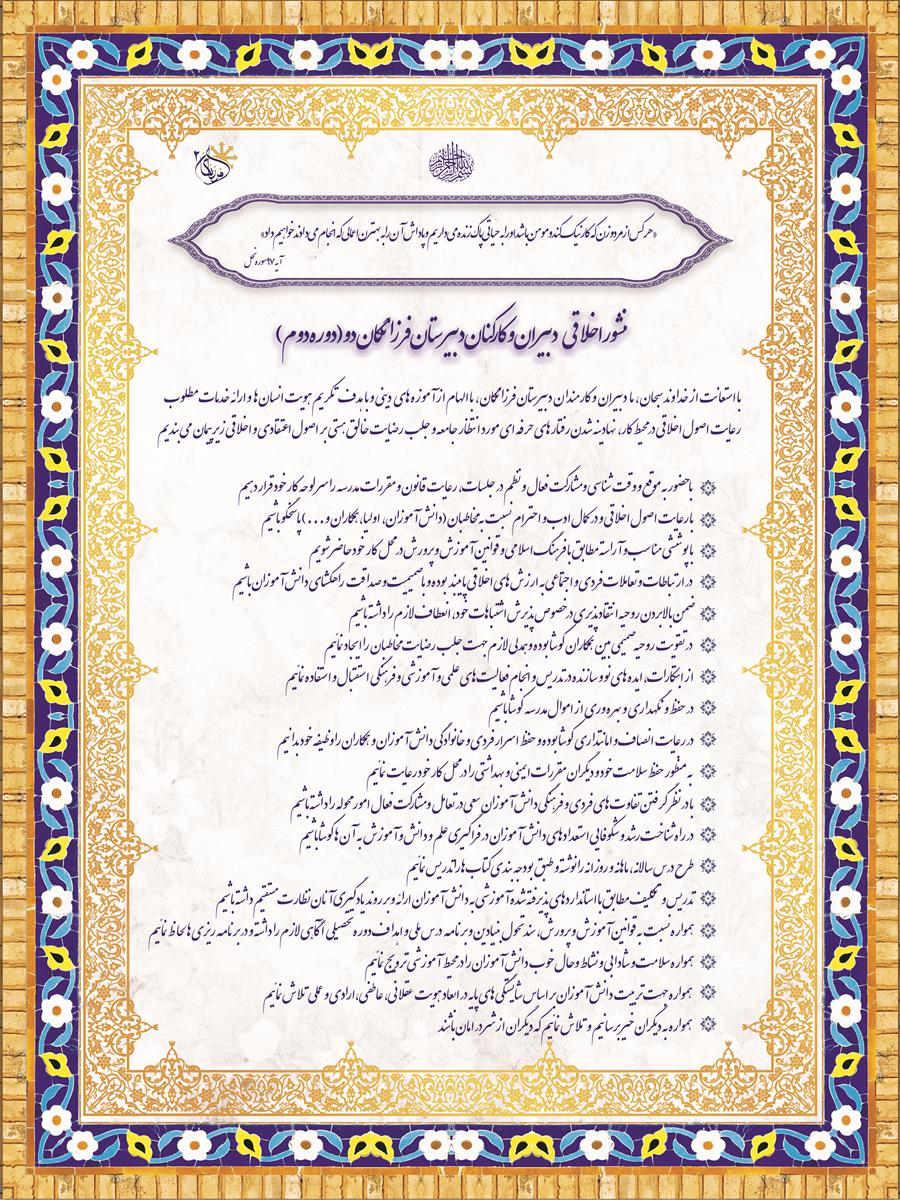 بسم الله الرحمن الرحیم
فرزانگان ۲
«هر کس از مرد و زن که کار نیک کند و مومن باشد او را به حیاتی پاک زنده می داریم و پاداش آن را به بهترین اعمالی که انجام می دادند خواهیم داد»
آیه ۹۷ سوره نحل
منشور اخلاقی دبیران و کارکنان دبیرستان فرزانگان دو (دوره دوم)
با استعانت از خداوند سبحان، ما دبیران و کارمندان دبیرستان فرزانگان، با الهام از آموزه های دینی و با هدف تکریم هویت انسان ها و ارائه خدمات مطلوب
رعایت اصول اخلاقی در محیط کار، نهادینه شدن رفتارهای حرفه ای مورد انتظار جامعه و جلب رضایت خالق هستی بر اصول اعتقادی و اخلاقی زیر پیمان می بندیم
با حضور به موقع و وقت شناسی و مشارکت فعال و نظم در جلسات، رعایت قانون و مقررات مدرسه را سرلوحه کار خود قرار دهیم
با رعایت اصول اخلاقی و در کمال ادب و احترام نسبت به مخاطبان (دانش آموزان، اولیا، همکاران و ...) پاسخگو باشیم
با پوششی مناسب و آراسته مطابق با فرهنگ اسلامی و قوانین آموزش و پرورش در محل کار خود حاضر شویم
در ارتباطات و تعاملات فردی و اجتماعی به ارزش های اخلاقی پایبند بوده و با صمیمیت و صداقت راهگشای دانش آموزان باشیم
ضمن بالا بردن روحیه انتقاد پذیری در خصوص پذیرش اشتباهات خود، انعطاف لازم را داشته باشیم
در تقویت روحیه صمیمی بین همکاران کوشا بوده و همدلی لازم جهت جلب رضایت مخاطبان را ایجاد نمائیم
از ابتکارات، ایده های نو و سازنده در تدریس و انجام فعالیت های علمی و آموزشی و فرهنگی استقبال و استفاده نمائیم
در حفظ و نگهداری و بهره وری از اموال مدرسه کوشا باشیم
در رعایت انصاف و امانتداری کوشا بوده و حفظ اسرار فردی و خانوادگی دانش آموزان و همکاران را وظیفه خود بدانیم
به منظور حفظ سلامت خود و دیگران مقررات ایمنی و بهداشتی را در محل کار خود رعایت نمائیم
با در نظر گرفتن تفاوت های فردی و فرهنگی دانش آموزان سعی در تعامل و مشارکت فعال امور محوله را داشته باشیم
در راه شناخت رشد و شکوفایی استعدادهای دانش آموزان در فراگیری علم و دانش و آموزش به آن ها کوشا باشیم
طرح درس سالانه، ماهانه و روزانه را نوشته و طبق بودجه بندی کتاب ها را تدریس نمائیم
تدریس و تکلیف مطابق با استانداردهای پذیرفته شده آموزشی به دانش آموزان ارائه و بر روند یادگیری آنان نظارت مستقیم داشته باشیم
همواره نسبت به قوانین آموزش و پرورش، سند تحول بنیادین و برنامه درس ملی و اهداف دوره تحصیلی آگاهی لازم را داشته و در برنامه ریزی ها لحاظ نمائیم
همواره سلامت و شادابی و نشاط و حال خوب دانش آموزان را در محیط آموزشی ترویج نمائیم
همواره جهت تربیت دانش آموزان بر اساس شایستگی های پایه در ابعاد هویت عقلانی، عاطفی، ارادی و عملی تلاش نمائیم
همواره به دیگران خیر برسانیم و تلاش نمائیم که دیگران از شر در امان باشند